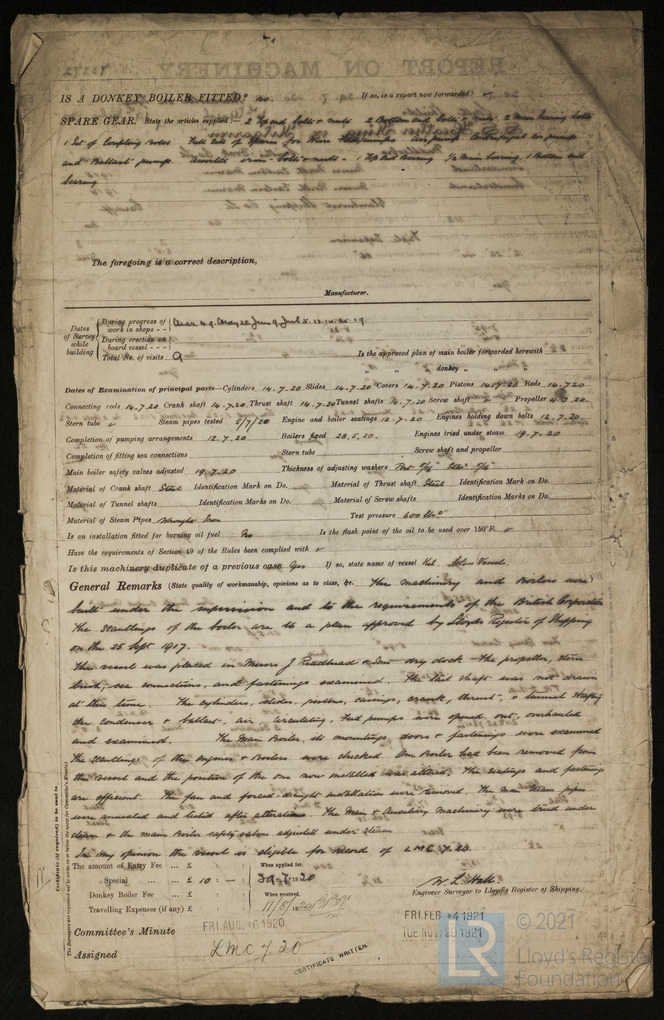 IS A DONKEY BOILER FITTED? no. If so, is a report now forwarded?
SPARE GEAR. State the articles supplied :— 2 Top end bolts & nuts 2 Bottom end bolts & nuts 2 Main bearing bolts
1 Set of Coupling bolts Full set of Spares for Weir Feed pumps air pump Centrifugal air pump
and Ballast pump. Assorted iron bolts & nuts 1 Top End Bearing, 1/2 Main bearing, 1 Bottom end
bearing
The foregoing is a correct description,
Manufacturer.
Dates of Survey while building
During progress of work in shops - -
During erection on board vessel - - -
Total No. of visits 9
Is the approved plan of main boiler forwarded herewith
" " " donkey " "
Dates of Examination of principal parts—Cylinders 14.7.20 Slides 14.7.20 Covers 14.7.20 Pistons 14.7.20 Rods 14.7.20
Connecting rods 14.7.20 Crank shaft 14.7.20 Thrust shaft 14.7.20 Tunnel shafts 14.7.20 Screw shaft Propeller 4.3.20
Stern tube Steam pipes tested 5/7/20 Engine and boiler seatings 12.7.20 Engines holding down bolts 12.7.20
Completion of pumping arrangements 12.7.20 Boilers fixed 28.5.20. Engines tried under steam 19.7.20
Completion of fitting sea connections Stern tube Screw shaft and propeller
Main boiler safety valves adjusted 19.7.20 Thickness of adjusting washers Port 7/16 Star 7/16
Material of Crank shaft Steel Identification Mark on Do. Material of Thrust shaft Steel Identification Mark on Do.
Material of Tunnel shafts Identification Marks on Do. Material of Screw shafts Identification Marks on Do.
Material of Steam Pipes Wrought Iron Test pressure 600 lbs
Is an installation fitted for burning oil fuel No Is the flash point of the oil to be used over 150°F.
Have the requirements of Section 49 of the Rules been complied with
Is this machinery duplicate of a previous case Yes If so, state name of vessel Vessel
General Remarks (State quality of workmanship, opinions as to class, &c. The Machinery and Boilers were
built under the supervision and to the requirements of the British Corporation
The Scantlings of the boiler are to a plan approved by Lloyds Register of Shipping
on the 25 Sept 1917.
The vessel was placed in Messrs J Readhead & Sons dry dock the propeller, stern
bush, sea connections, and fastenings examined. The tail shaft was not drawn
at this time. The cylinders, slides, pistons, casings, crank, thrust, & tunnel shafting
the Condenser & ballast, air circulating, feed pumps were opened out, overhauled
and examined. The Main Boiler, its mountings, doors & fastenings were examined
The Scantlings of the engines & Boilers were checked. One Boiler had been removed from
the vessel and the position of the one now installed was altered. The seatings and fastenings
are efficient. The fan and forced draught installation were removed. The main steam pipes
were annealed and tested after alterations. The Main & Auxiliary Machinery were tried under
steam & the main Boiler safety valves adjusted under steam
In my opinion the vessel is eligible for record of LMC 7.20
The amount of Entry Fee ... £ : : When applied for,
Special ... ... £ 10 : — : 30.7.1920
Donkey Boiler Fee ... £ : : When received,
Travelling Expenses (if any) £ : : 11/8/1920
W. L. Hall
Engineer Surveyor to Lloyd's Register of Shipping.
Committee's Minute FRI. AUG. 6 1920
FRI. FEB. 4 1921
TUE. NOV. 29 1921
Assigned LMC 7.20
CERTIFICATE WRITTEN.
Certificate (if required) to be sent to
The Surveyors are requested not to write on or below the space for Committee's Minute.
© 2021
Lloyd's Register
Foundation
LR